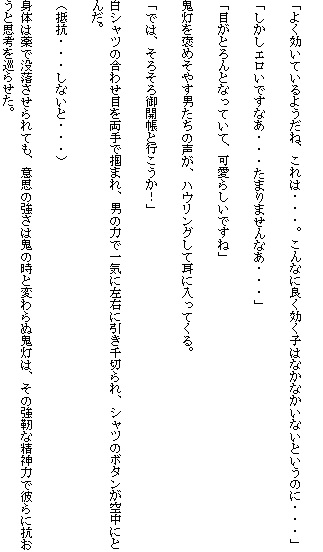 「よく効いているようだね、これは・・・。こんなに良く効く子はなかなかいないというのに・・・」
「しかしエロいですなあ・・・たまりませんなあ・・・」
「目がとろんとなっていて、可愛らしいですね」
鬼灯を褒めそやす男たちの声が、ハウリングして耳に入ってくる。
「では、そろそろ御開帳と行こうか！」
白シャツの合わせ目を両手で掴まれ、男の力で一気に左右に引き千切られ、シャツのボタンが空中にと
んだ。
（抵抗・・・しないと・・・）
身体は薬で没落させられても、意思の強さは鬼の時と変わらぬ鬼灯は、その強靭な精神力で彼らに抗お
うと思考を巡らせた。